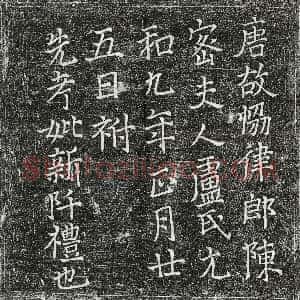 唐故恊律郎陳
密夫人盧氏大
和九年正月廿
五日祔
先考妣新阡禮也